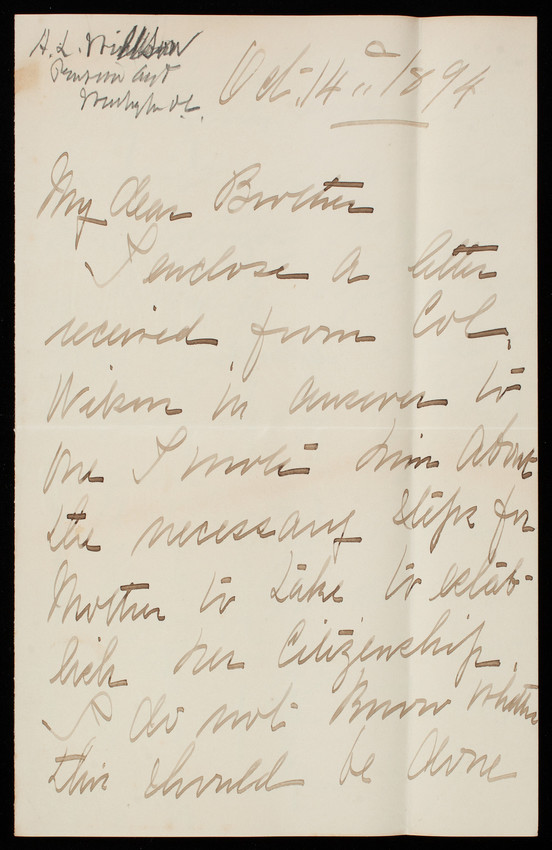 H. L. Willson
Pension Agt
Washgtn D.C.
Oct. 14" 1894
My dear Brother
I enclose a letter
received from Col.
Wilson in answer to
one I wrote him about
the necessary steps for
Mother to take to estab-
lish her Citizenship.
I do not know whether
this should be done